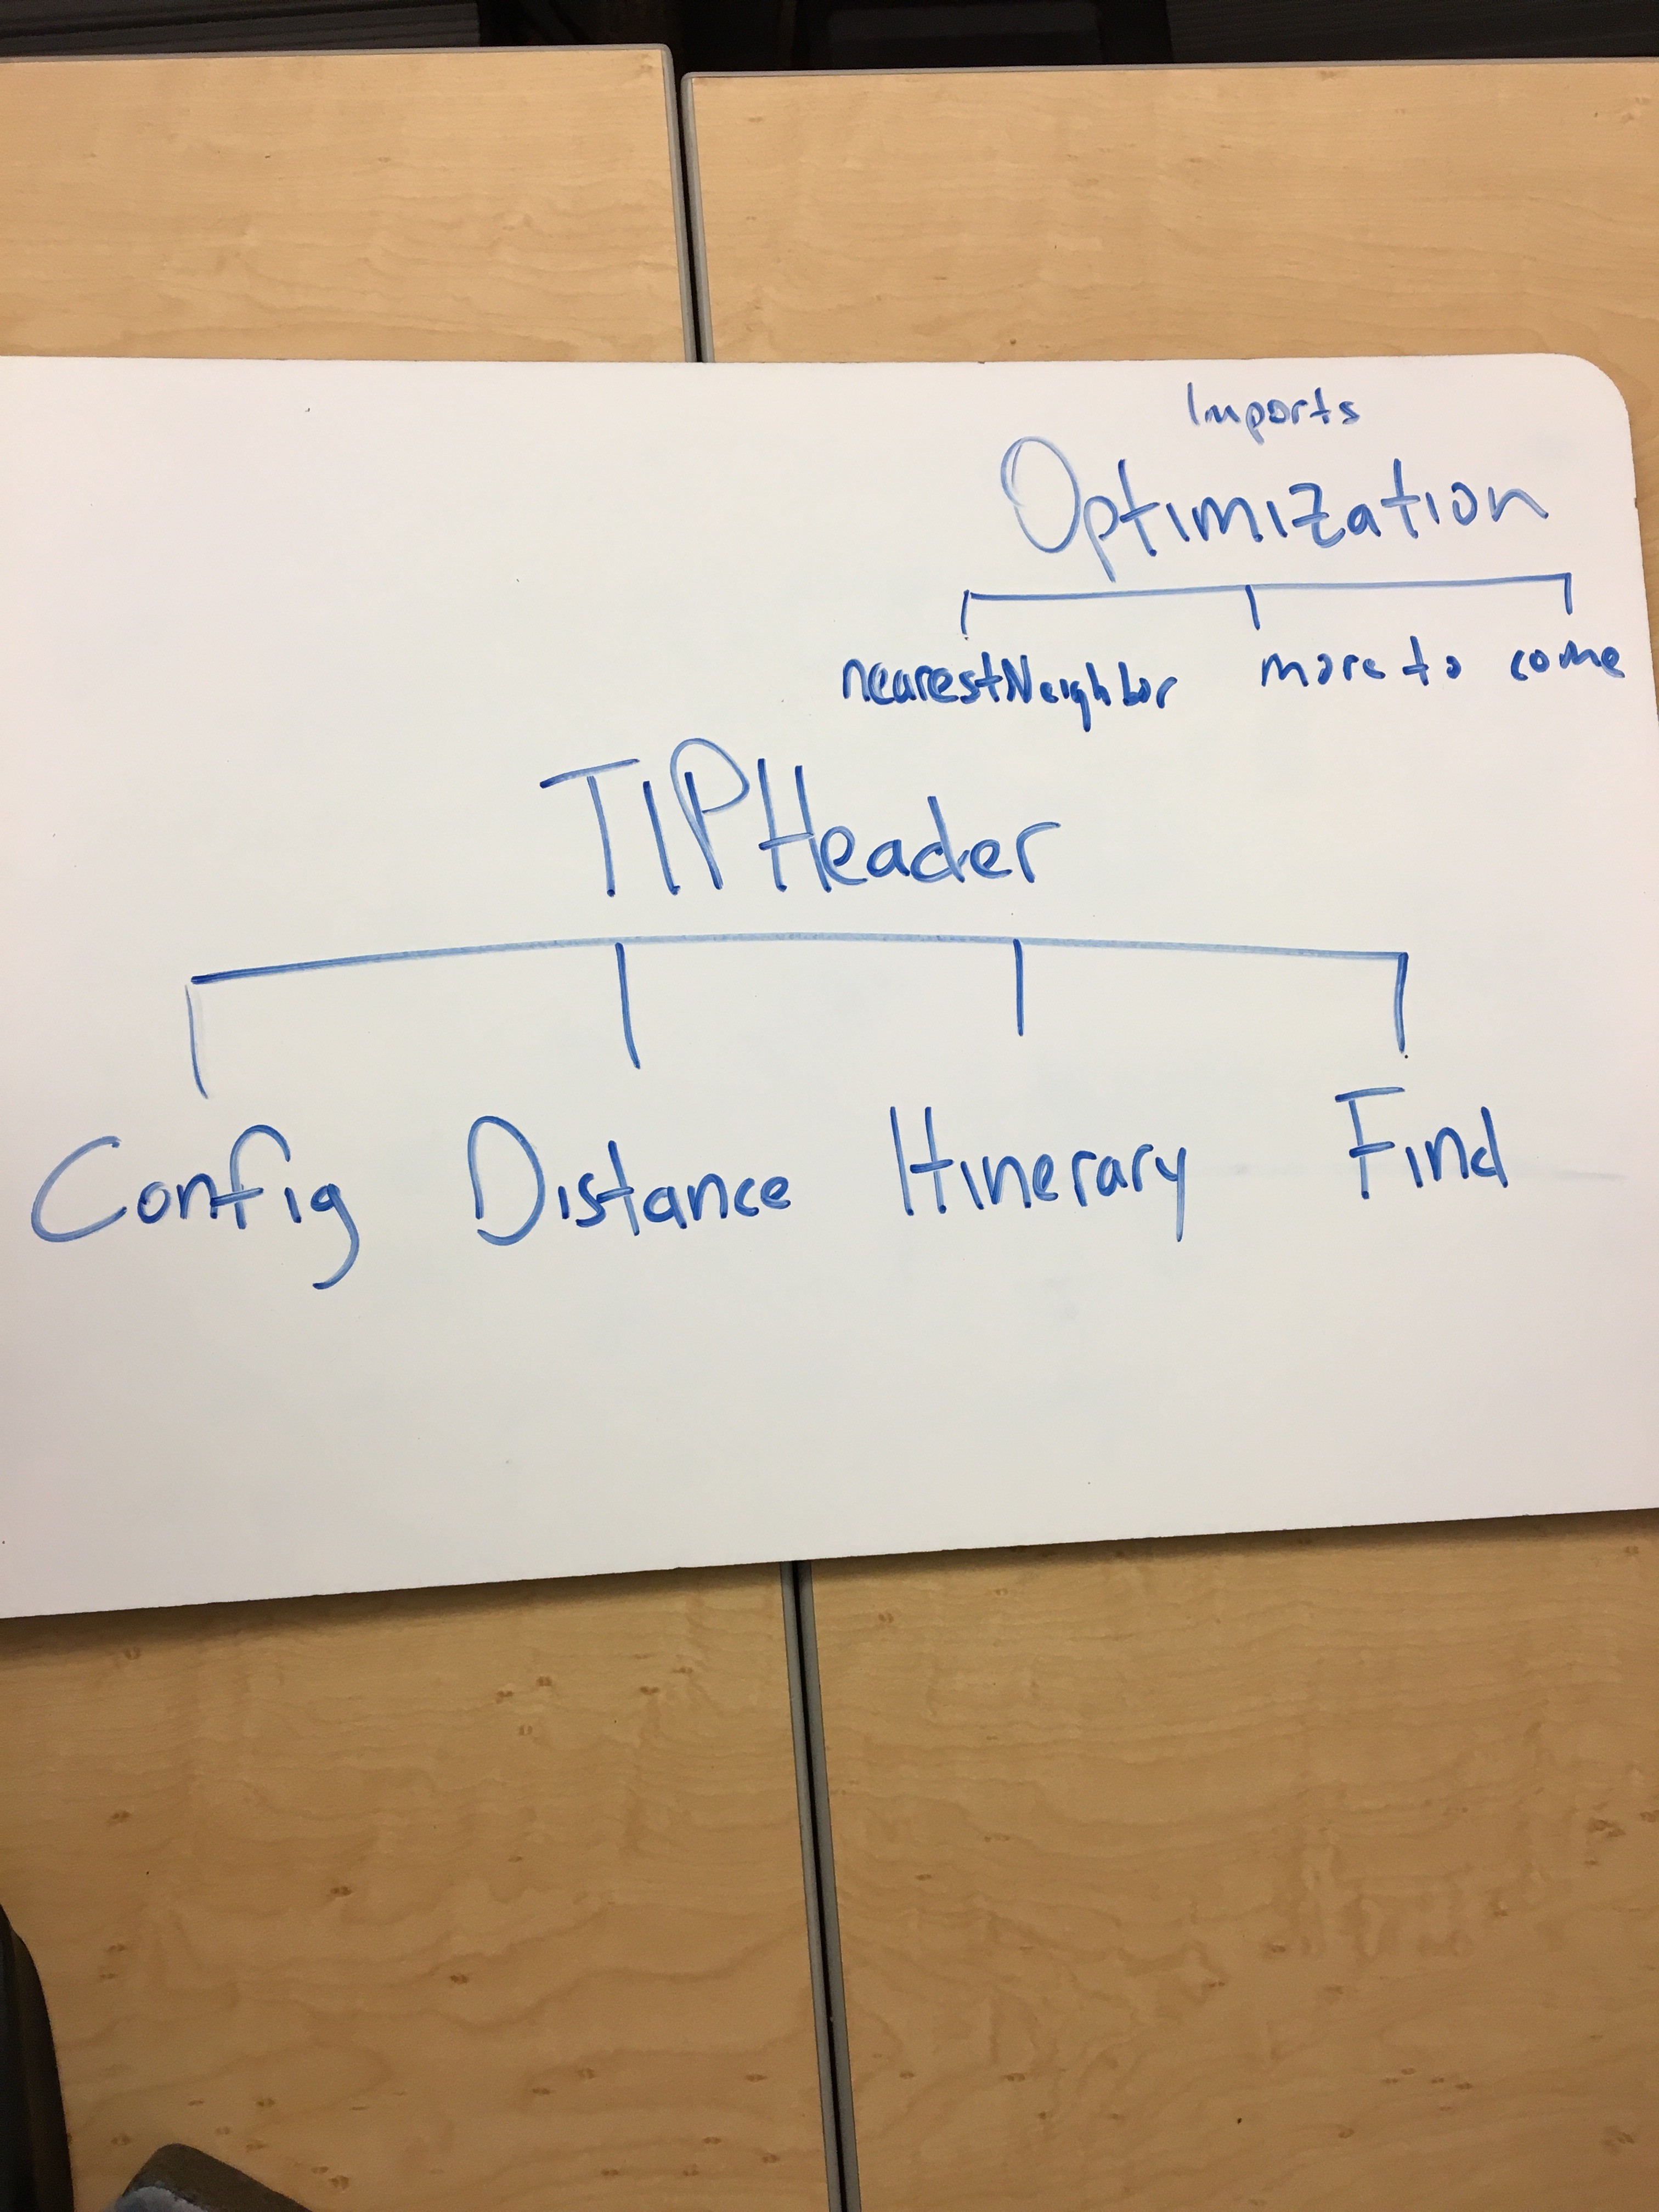 Imports
Optimization
nearestNeighbor more to come
TIPHeader
Config Distance Itinerary Find